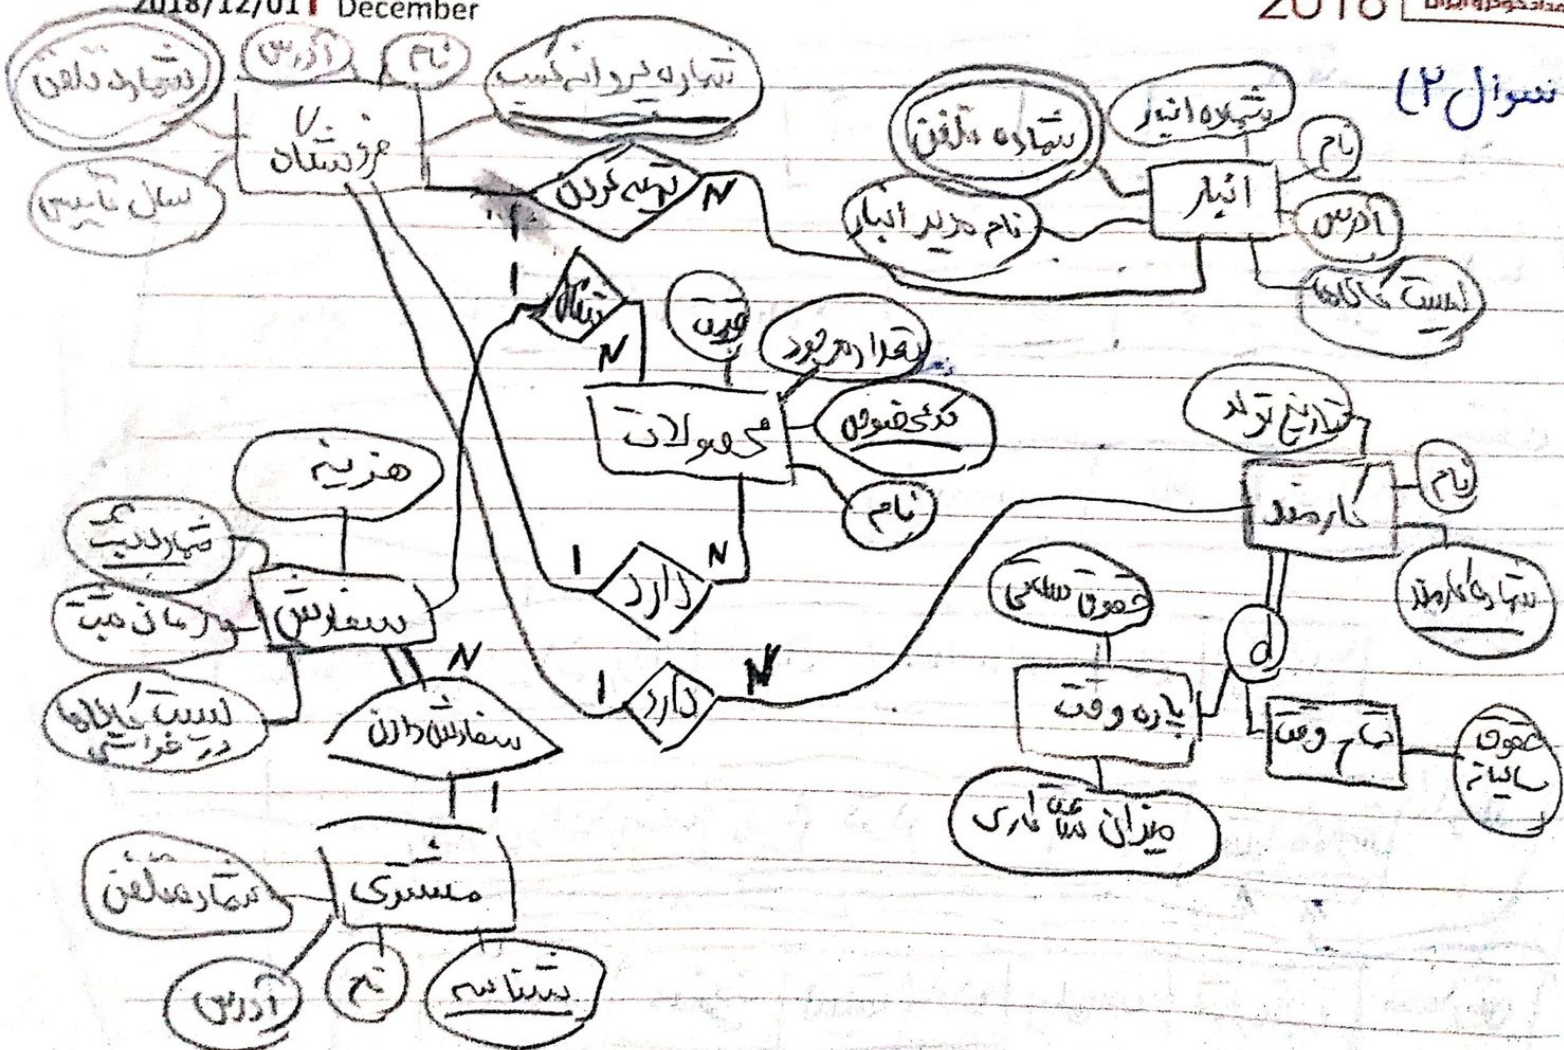 2018/12/01 December
2016
سوال ۲)
شماره تلفن
آدرس
نام
شماره پروانه کسب
فروشگاه
سال تاسیس
تهیه کردن
N
1
شماره تلفن
شماره انبار
نام
انبار
نام مدیر انبار
آدرس
لیست کالاها
1
N
قیمت
تعداد موجود
محصولات
نام
تاریخ تولد
نام
کارمند
شماره کارمند
هزینه
شماره ثبت
سفارش
زمان ثبت
لیست کالاها
در خواستی
1
دارد
N
1
دارد
N
حقوق ساعتی
d
پاره وقت
تمام وقت
حقوق
سالیانه
میزان ساعت کاری
N
سفارش دادن
1
مشتری
شماره تلفن
آدرس
نام
شناسه